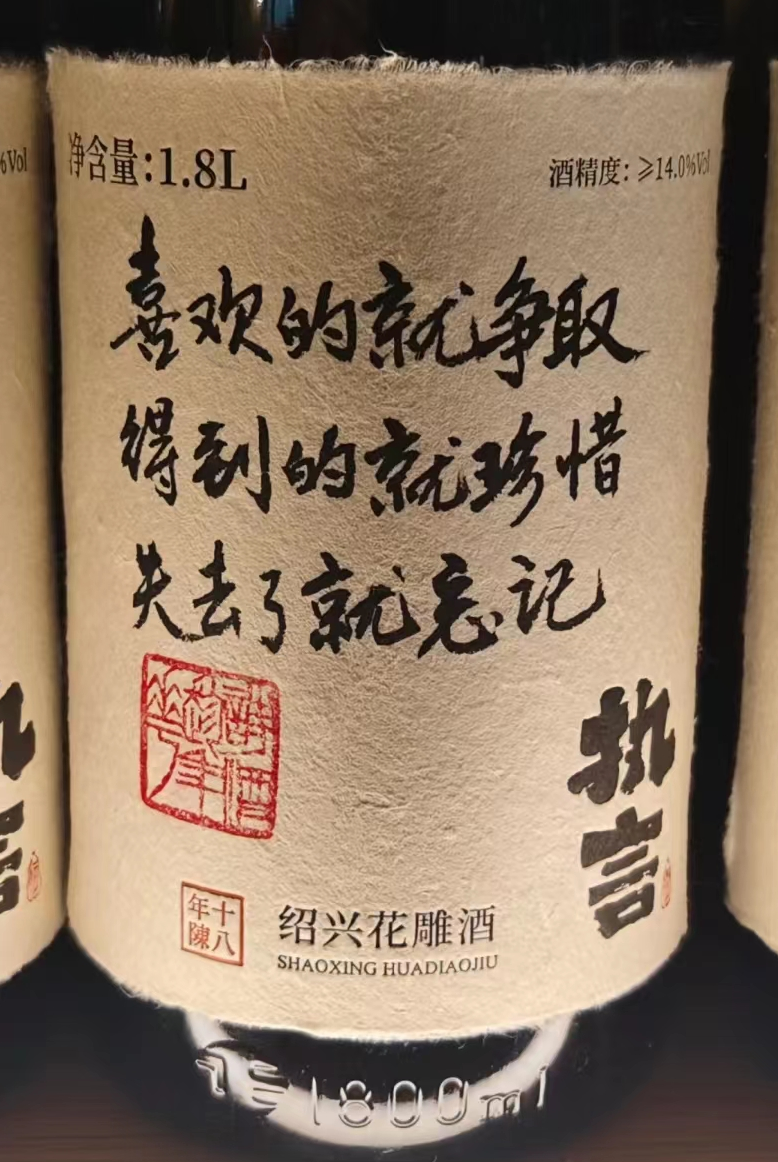 净含量:1.8L
酒精度: ≥14.0%Vol
喜欢的就争取
得到的就珍惜
失去了就忘记
执言
十八年陳
绍兴花雕酒
SHAOXING HUADIAOJIU
1800ml
%Vol